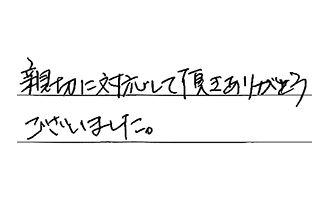 親切に対応して頂きありがとう
ございました。